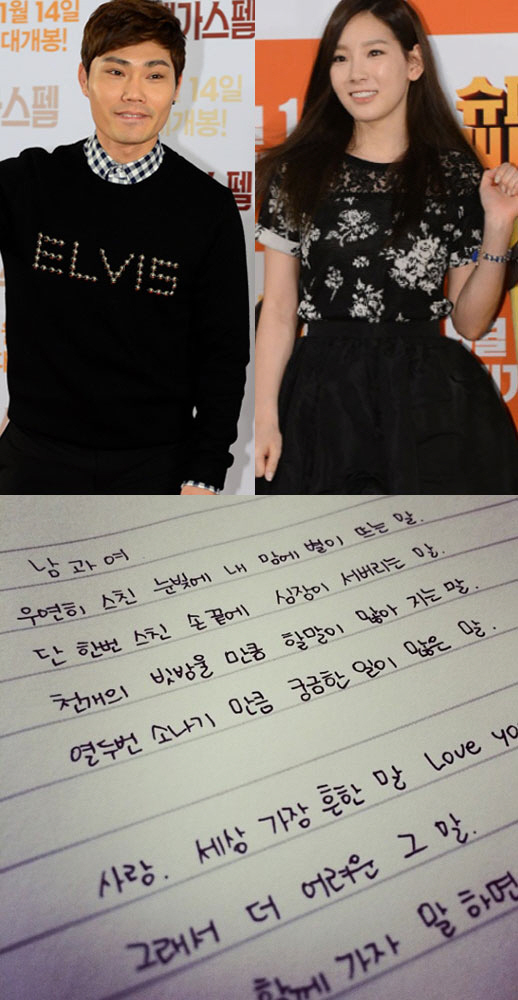 1월 14일
대개봉!
가스펠
14일
개봉!
가스펠
ELVIS
1
슈
월
남과여
우연히 스친 눈빛에 내 맘에 별이 뜨는 말.
단 한번 스친 손끝에 심장이 서버리는 말.
천개의 빗방울 만큼 할말이 많아 지는 말.
열두번 소나기 만큼 궁금한 일이 많은 말.
사랑. 세상 가장 흔한 말 Love yo
그래서 더 어려운 그 말.
함께 가자 말 하면